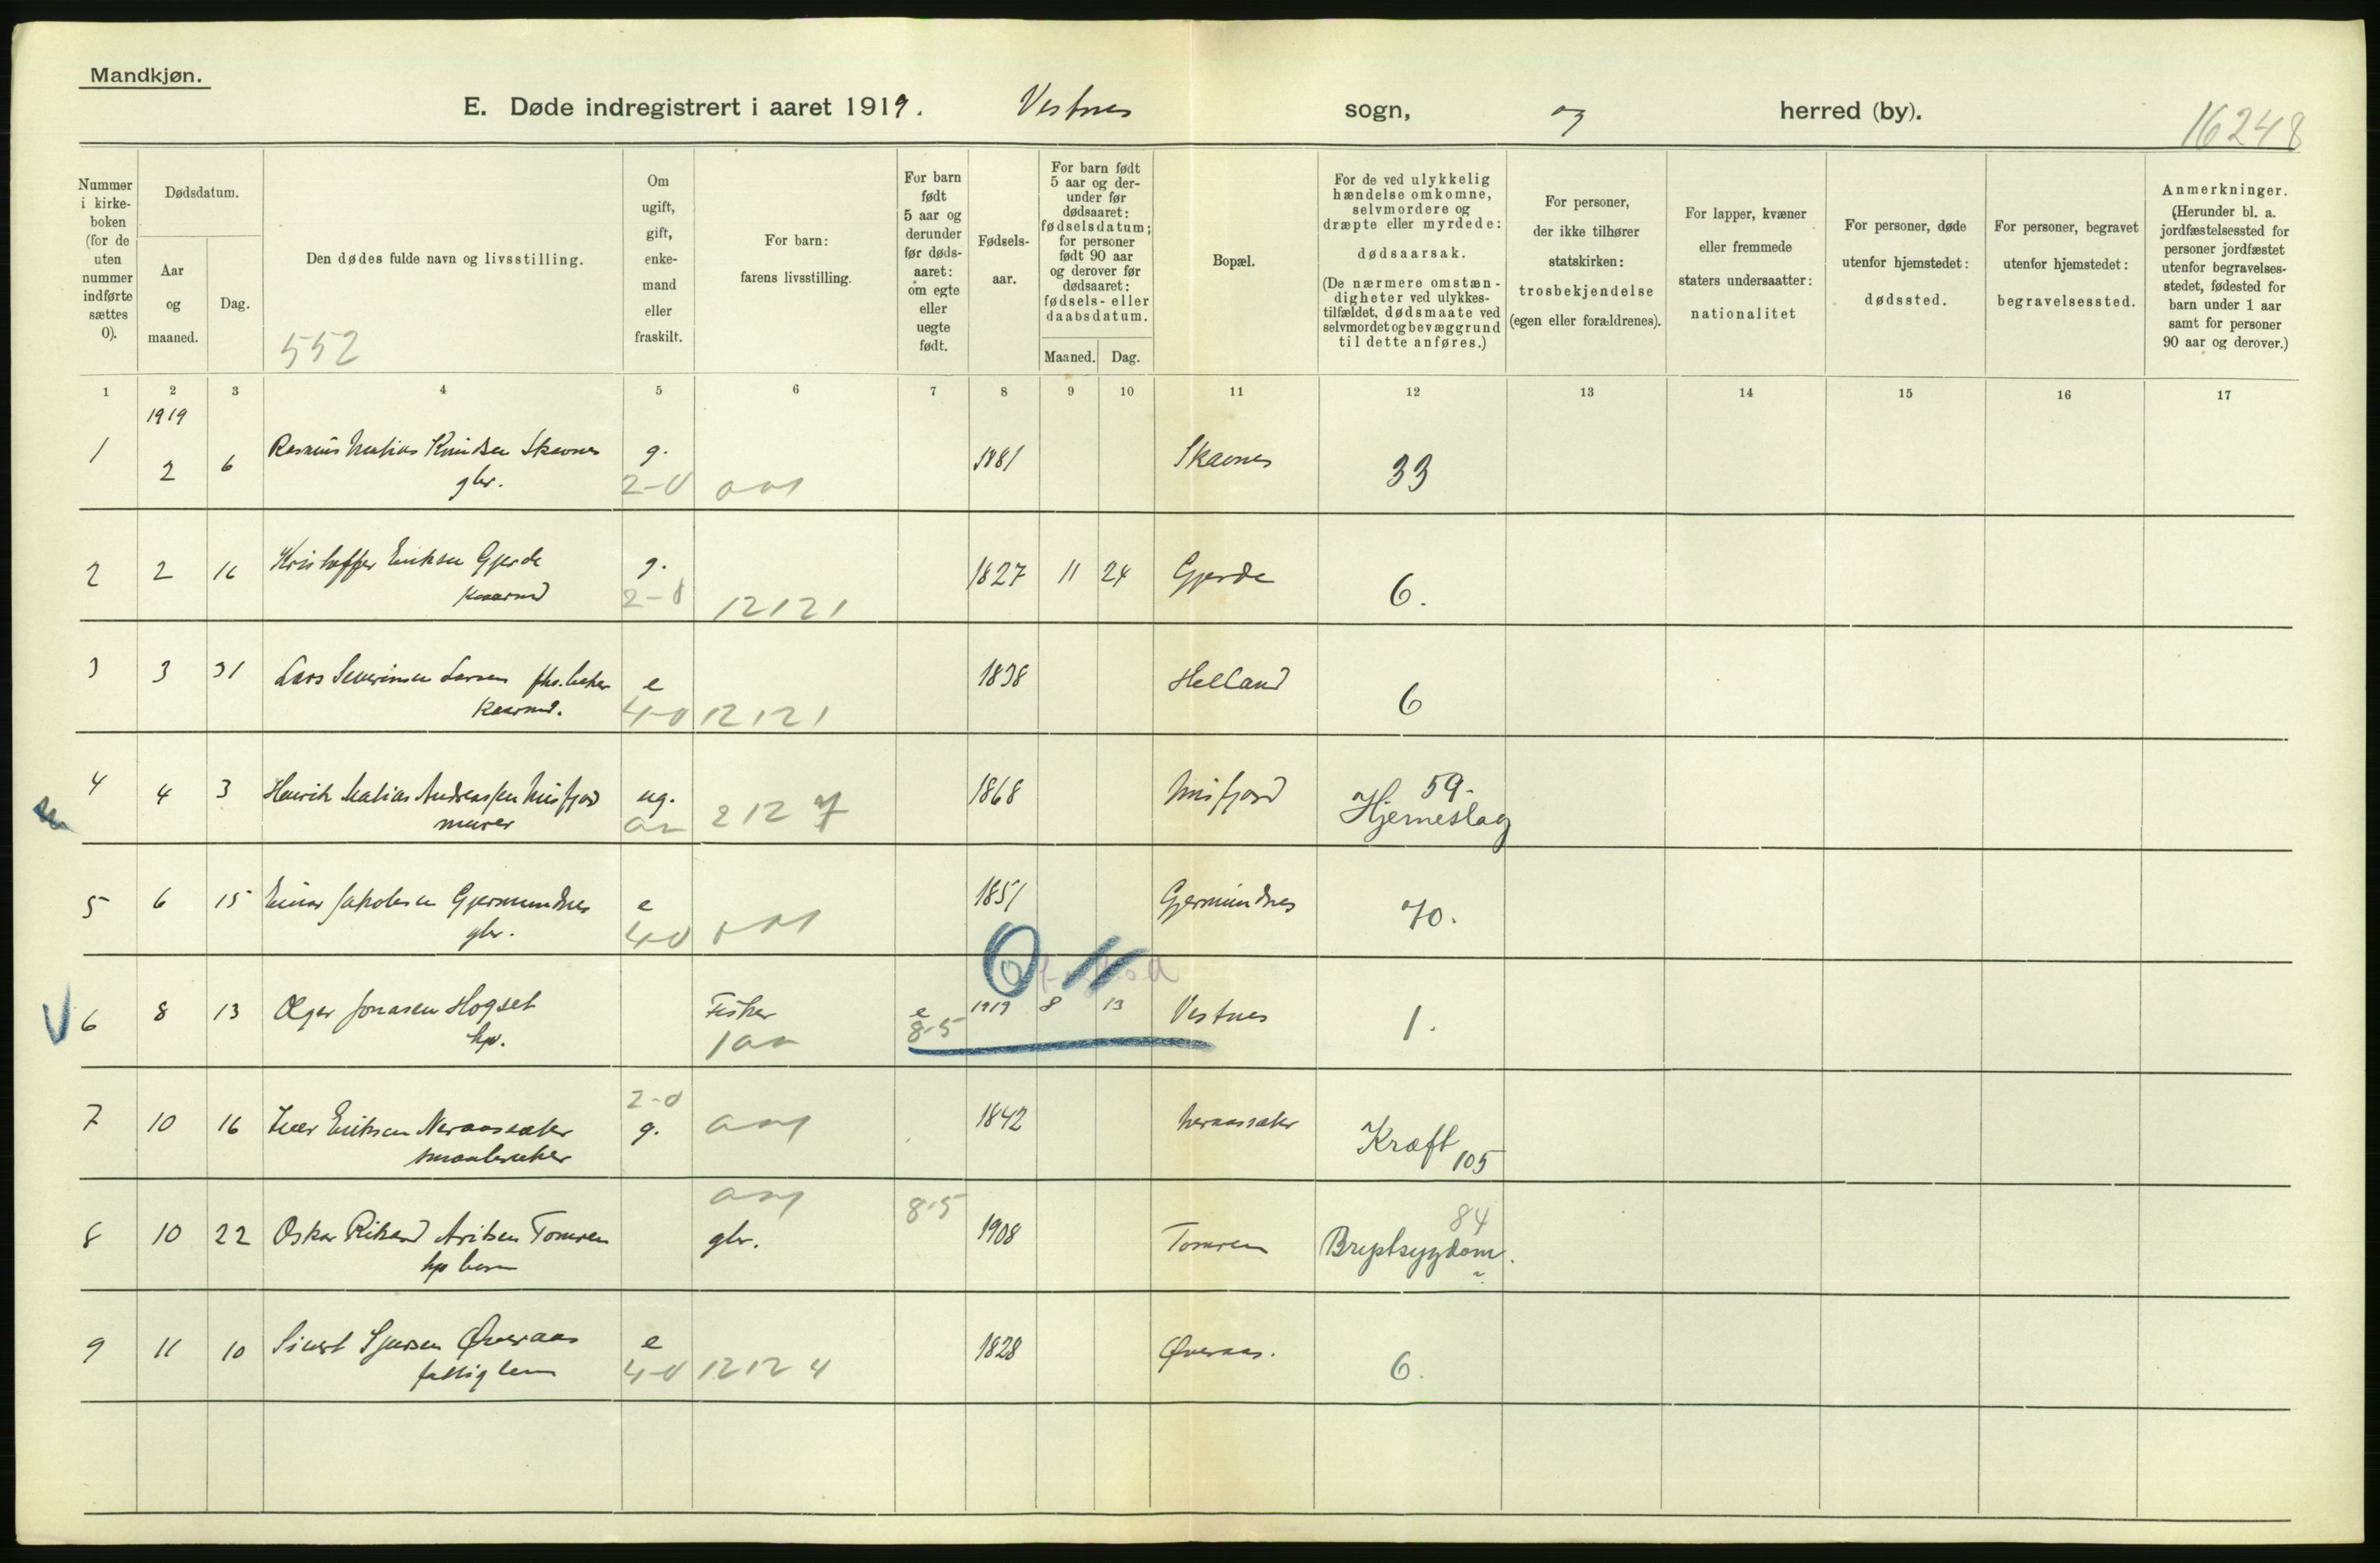 Mandkjøn.
E. Døde indregistrert i aaret 1919. Vestnes sogn, og herred (by).
16248
Nummer i kirkeboken (for de uten nummer indførte sættes 0).
Dødsdatum.
Aar og maaned.
Dag.
Den dødes fulde navn og livsstilling.
552
Om ugift, gift, enkemand eller fraskilt.
For barn: farens livsstilling.
For barn født 5 aar og derunder før dødsaaret: om egte eller uegte født.
Fødselsaar.
For barn født 5 aar og derunder før dødsaaret: fødselsdatum; for personer født 90 aar og derover før dødsaaret: fødsels- eller daabsdatum.
Maaned. Dag.
Bopæl.
For de ved ulykkelig hændelse omkomne, selvmordere og dræpte eller myrdede: dødsaarsak.
(De nærmere omstændigheter ved ulykkestilfældet, dødsmaate ved selvmordet og bevæggrund til dette anføres.)
For personer, der ikke tilhører statskirken: trosbekjendelse (egen eller forældrenes).
For lapper, kvæner eller fremmede staters undersaatter: nationalitet
For personer, døde utenfor hjemstedet: dødssted.
For personer, begravet utenfor hjemstedet: begravelsessted.
Anmerkninger. (Herunder bl. a. jordfæstelsessted for personer jordfæstet utenfor begravelsesstedet, fødested for barn under 1 aar samt for personer 90 aar og derover.)
1 2 3 4 5 6 7 8 9 10 11 12 13 14 15 16 17
1919
1 2 6 Rasmus Matias Knudsen Skavnes g. 1881 Skavnes 33
gbr. 2-0
2 2 16 Kristoffer Eriksen Gjerde g. 1827 11 24 Gjerde 6.
Kaarmd 2-0 12121
3 3 31 Lars Severinsen Larsen e 1838 Helland 6
Kaarmd. 4-0 12121
4 4 3 Henrik Matias Andreassen Misfjord ug. 1868 Misfjord 59.
murer 2127 Hjerneslag
5 6 15 Einar Jakobsen Gjermundnes e 1851 Gjermundnes 70.
gbr. 4-0
6 8 13 Olger Jonasen Hogset Fisker e 1919 8 13 Vestnes 1.
hp. 8-5
7 10 16 Iver Eriksen Neraasæter 2-0 g. 1842 Neraasæter Kræft 105
smaabruker
8 10 22 Oskar Rikard Aritsen Tomren gbr. 8-5 1908 Tomren 84
hp barn Brystsygdom.
9 11 10 Sivert Sjursen Øveraas e 1828 Øveraas. 6.
fattiglem 4-0 12124